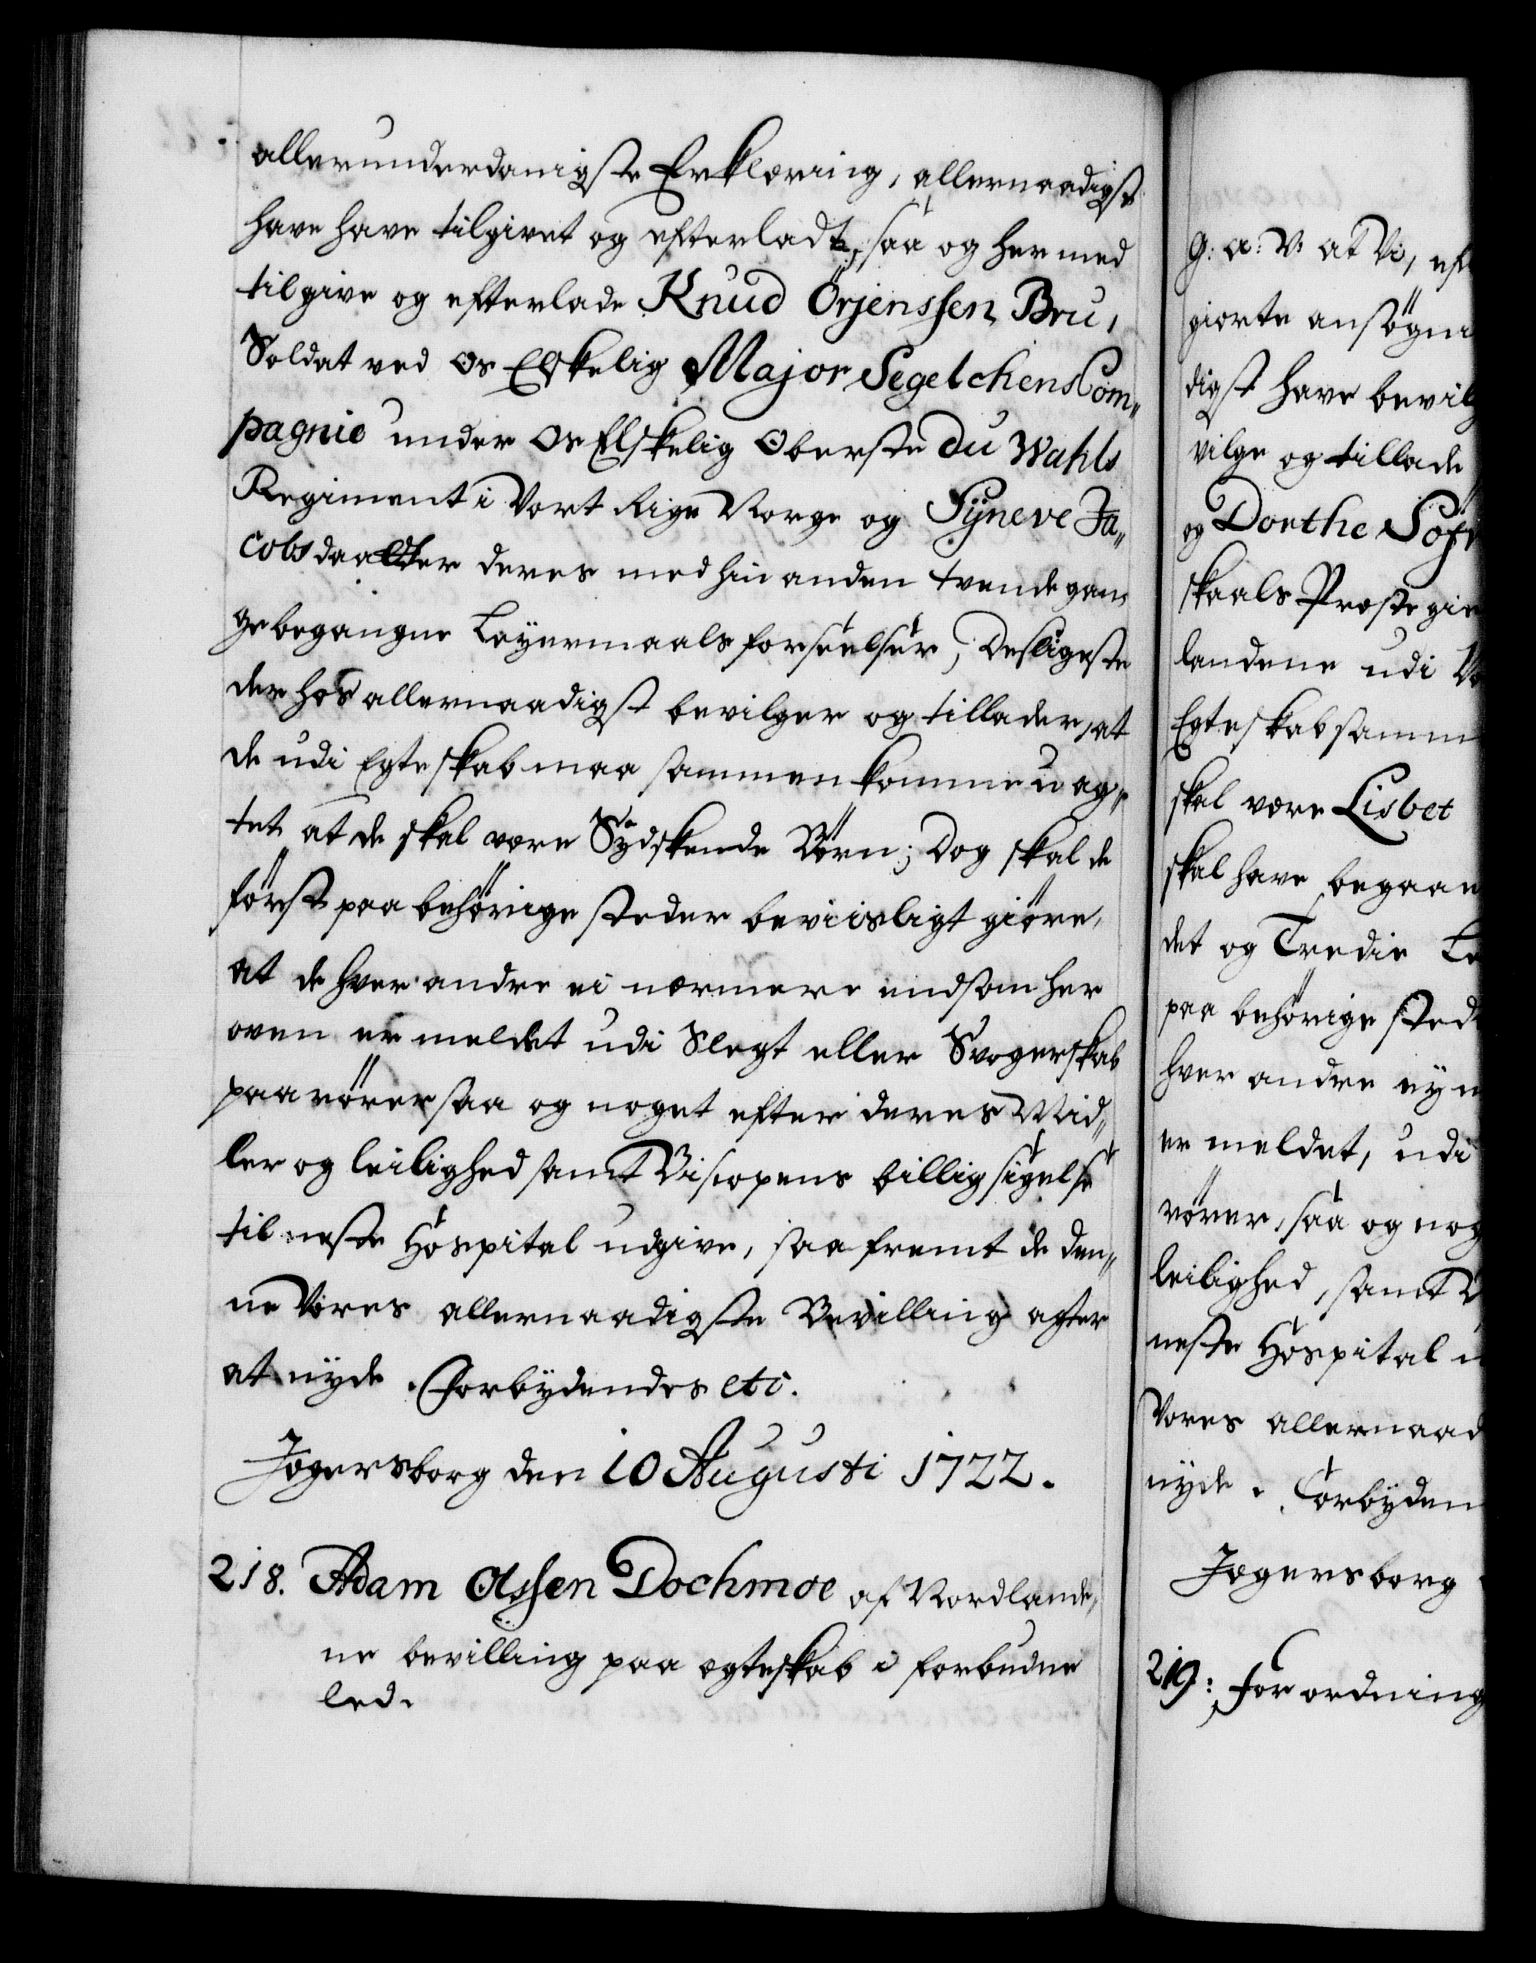 allerunderdanigste Erklæring, allernaadigst
have have tilgivet og efterladt, saa og hermed
tilgive og efterlade Knud Örjenssen Bru,
Soldat ved Os Elskelig Major Segelchens Com„
pagnie under Os Elskelig Oberste du Wahls
Regiment i Vort Rige Norge og Syneve Ja„
cobsdaatter deres med hin anden tvende gan„
ge begangne Leyermaals forseelser, Desligeste
der hos allernaadigst bevilger og tillader, at
de udi Egteskab maa sammenkomme uag„
tet at de skal være Sydskende Börn; Dog skal de
först paa behörige steder beviisligt giöre,
at de hver andre ei nærmere end som her
oven er meldet udi Slegt eller Svogerskab
paarörer saa og noget efter deres Mid„
ler og leilighed samt Biscopens billig sigelse
til neste Hospital udgive, saa fremt de den„
ne Vores allernaadigste Bevilling agter
at nyde. Forbydendes etc.
Jægersborg den 10 Augusti 1722.
218. Adam Olssen Dochmoe af Nordlande„
ne bevilling paa egteskab i forbudne
led.
G: A: V: at Vi, eft
giorte ansögni
digst have bevilg
vilge og tillade
og Dorthe Söfr
skaals Præste gie
landene udi Vo
Egteskab samm
skal være Lisbet
skal have begaae
det og Tredie Le
paa behörige stede
hver andre ey n
er meldet, udi
rörer, saa og nog
leilighed, samt B
neste Hospital u
Vores allernaad
nyde. Forbyden
Jægersborg
219: Forordning